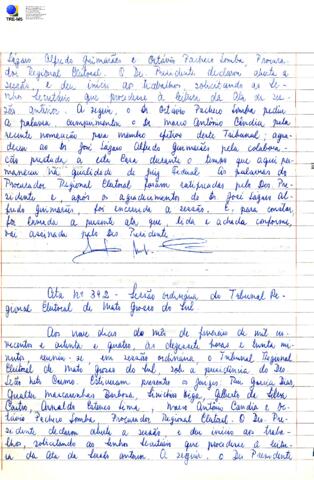 TRE-MS
Lázaro Alfredo Guimarães e Octávio Pacheco Lomba, Procura-
dor Regional Eleitoral. O Des. Presidente declarou aberta a
sessão, e deu início aos trabalhos, solicitando ao Se-
nhor Secretário que procedesse à leitura da Ata da ses-
são anterior. A seguir, o Dr. Octávio Pacheco Lomba pediu
a palavra, cumprimentou o Dr. Marco Antônio Cândia pela
recente nomeação para membro efetivo deste Tribunal, agra-
deceu ao Dr. José Lázaro Alfredo Guimarães pela colabora-
ção prestada a esta Corte durante o tempo que aqui per-
maneceu na qualidade de Juiz Federal. As palavras do
Procurador Regional Eleitoral foram ratificadas pelo Des. Pre-
sidente e, após os agradecimentos do Dr. José Lázaro Al-
fredo Guimarães, foi encerrada a sessão. E, para constar,
foi lavrada a presente ata que, lida e achada conforme,
vai assinada pelo Des. Presidente.
Ata nº 342 - Sessão ordinária do Tribunal Re-
gional Eleitoral de Mato Grosso do Sul
Aos nove dias do mês de fevereiro de mil no-
vecentos e oitenta e quatro, às dezessete horas e trinta
minutos, reuniu-se, em sessão ordinária, o Tribunal Regional
Eleitoral de Mato Grosso do Sul, sob a presidência do Des.
Leão Neto do Carmo. Estiveram presentes os Juízes: Rui Garcia Dias,
Mascarenhas Barbosa, Gilberto da Silva
Castro, Arnaldo Esteves Lima, Marco Antônio Cândia e Oc-
távio Pacheco Lomba, Procurador Regional Eleitoral. O Des. Pre-
sidente declarou aberta a sessão e deu início aos traba-
lhos, solicitando ao Senhor Secretário que procedesse à leitu-
ra da Ata da sessão anterior. A seguir, o Des. Presidente